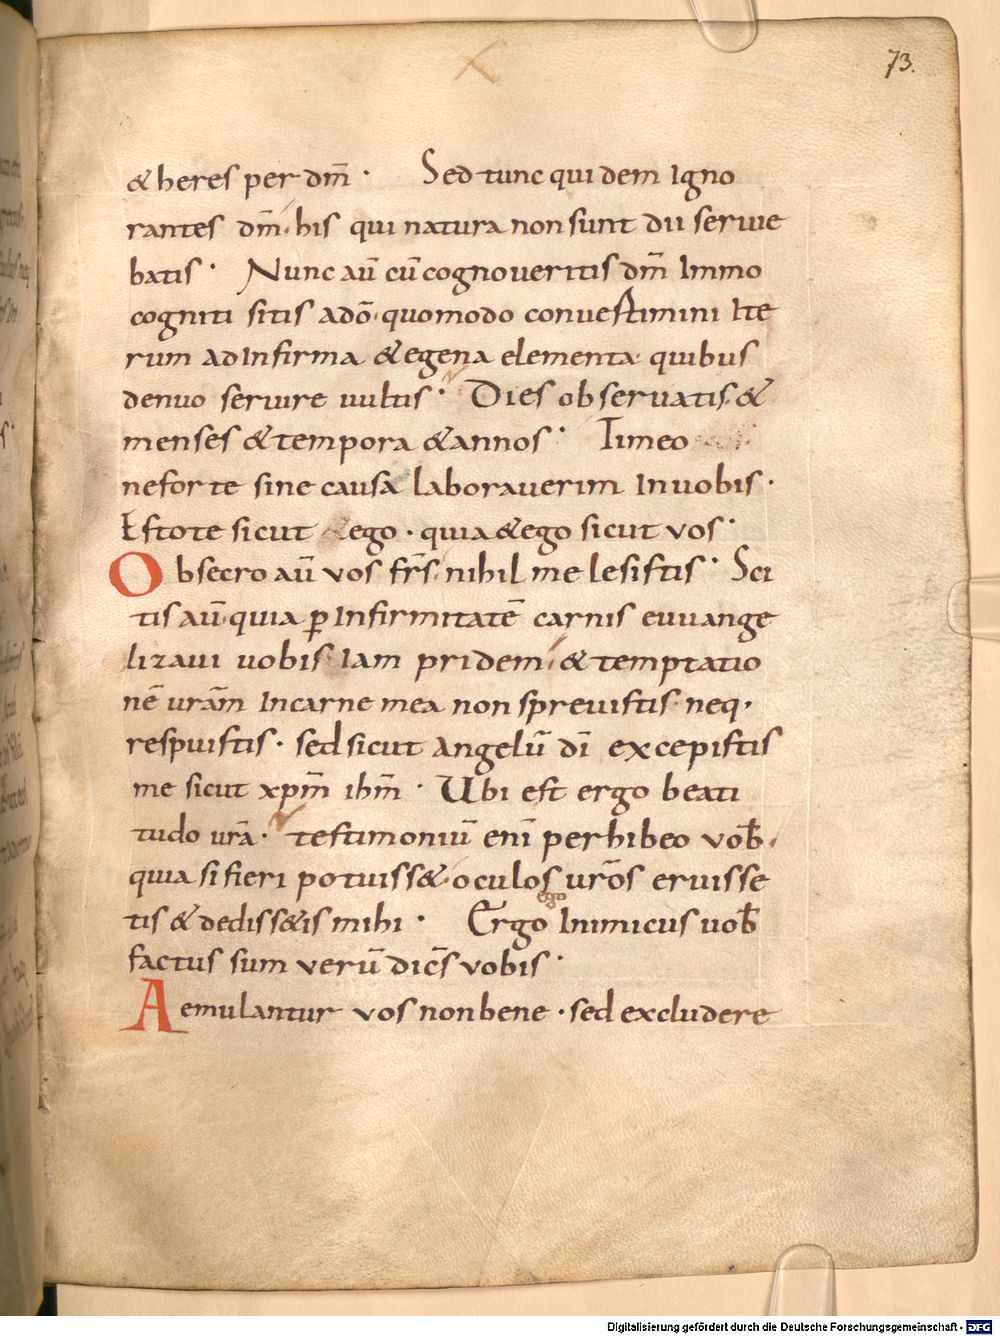 73.
& heres per dm̅ · Sed tunc quidem Igno
rantes dm̅ · his qui natura non sunt dii seruie
batis · Nunc au̅ cu̅ cognoueritis dm̅ Immo
cogniti sitis ado̅ · quomodo conuertimini Ite
rum ad Infirma & egena elementa quibus
denuo seruire uultis · Dies obseruatis &
menses & tempora & annos · Timeo
neforte sine causa laborauerim In uobis ·
Estote sicut & ego · quia & ego sicut vos ·
Obsecro au̅ vos fr̅s · nihil me lesistis · Sci
tis au̅ · quia ꝑ Infirmitate̅ carnis euuange
lizaui uobis Iam pridem · & temptatio
ne̅ ura̅m In carne mea non spreuistis · neq·
respuistis · sed sicut Angelu̅ di̅ excepistis
me sicut xpm̅ ihm̅ · Ubi est ergo beati
tudo ur̅a · testimoniu̅ eni̅ perhibeo vob̅ ·
quia si fieri potuiss& · oculos ur̅os eruisse
tis & dediss&is mihi · Ergo ego Inimicus uob̅
factus sum veru̅ dic̅s vobis ·
Aemulantur vos non bene · sed excludere
Digitalisierung gefördert durch die Deutsche Forschungsgemeinschaft - DFG